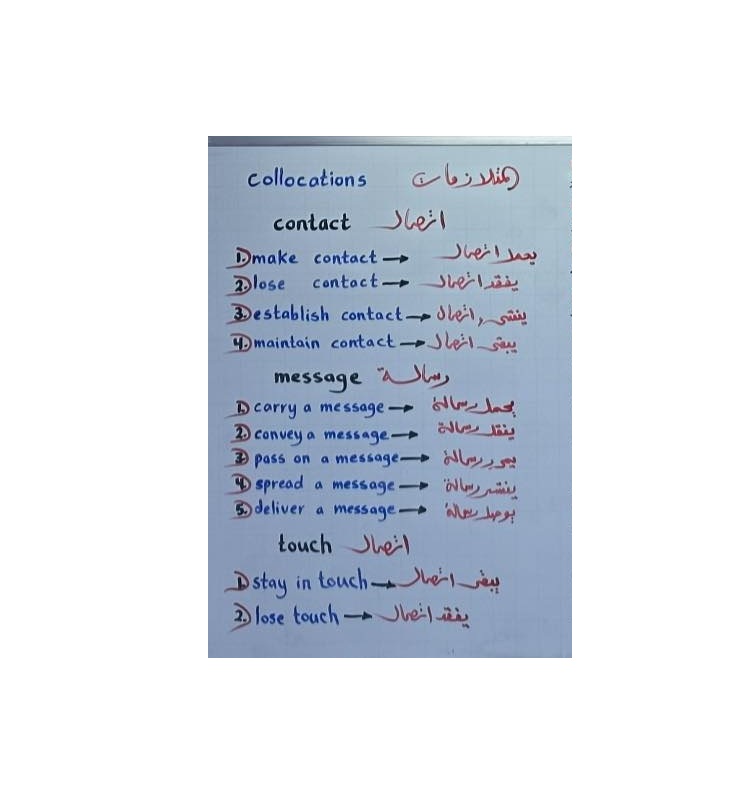 collocations المتلازمات
contact اتصال
1. make contact → يعمل اتصال
2. lose contact → يفقد اتصال
3. establish contact → ينشئ اتصال
4. maintain contact → يبقى اتصال
message رسالة
1. carry a message → يحمل رسالة
2. convey a message → ينقل رسالة
3. pass on a message → يمرر رسالة
4. spread a message → ينشر رسالة
5. deliver a message → يوصل رسالة
touch اتصال
1. stay in touch → يبقى اتصال
2. lose touch → يفقد اتصال